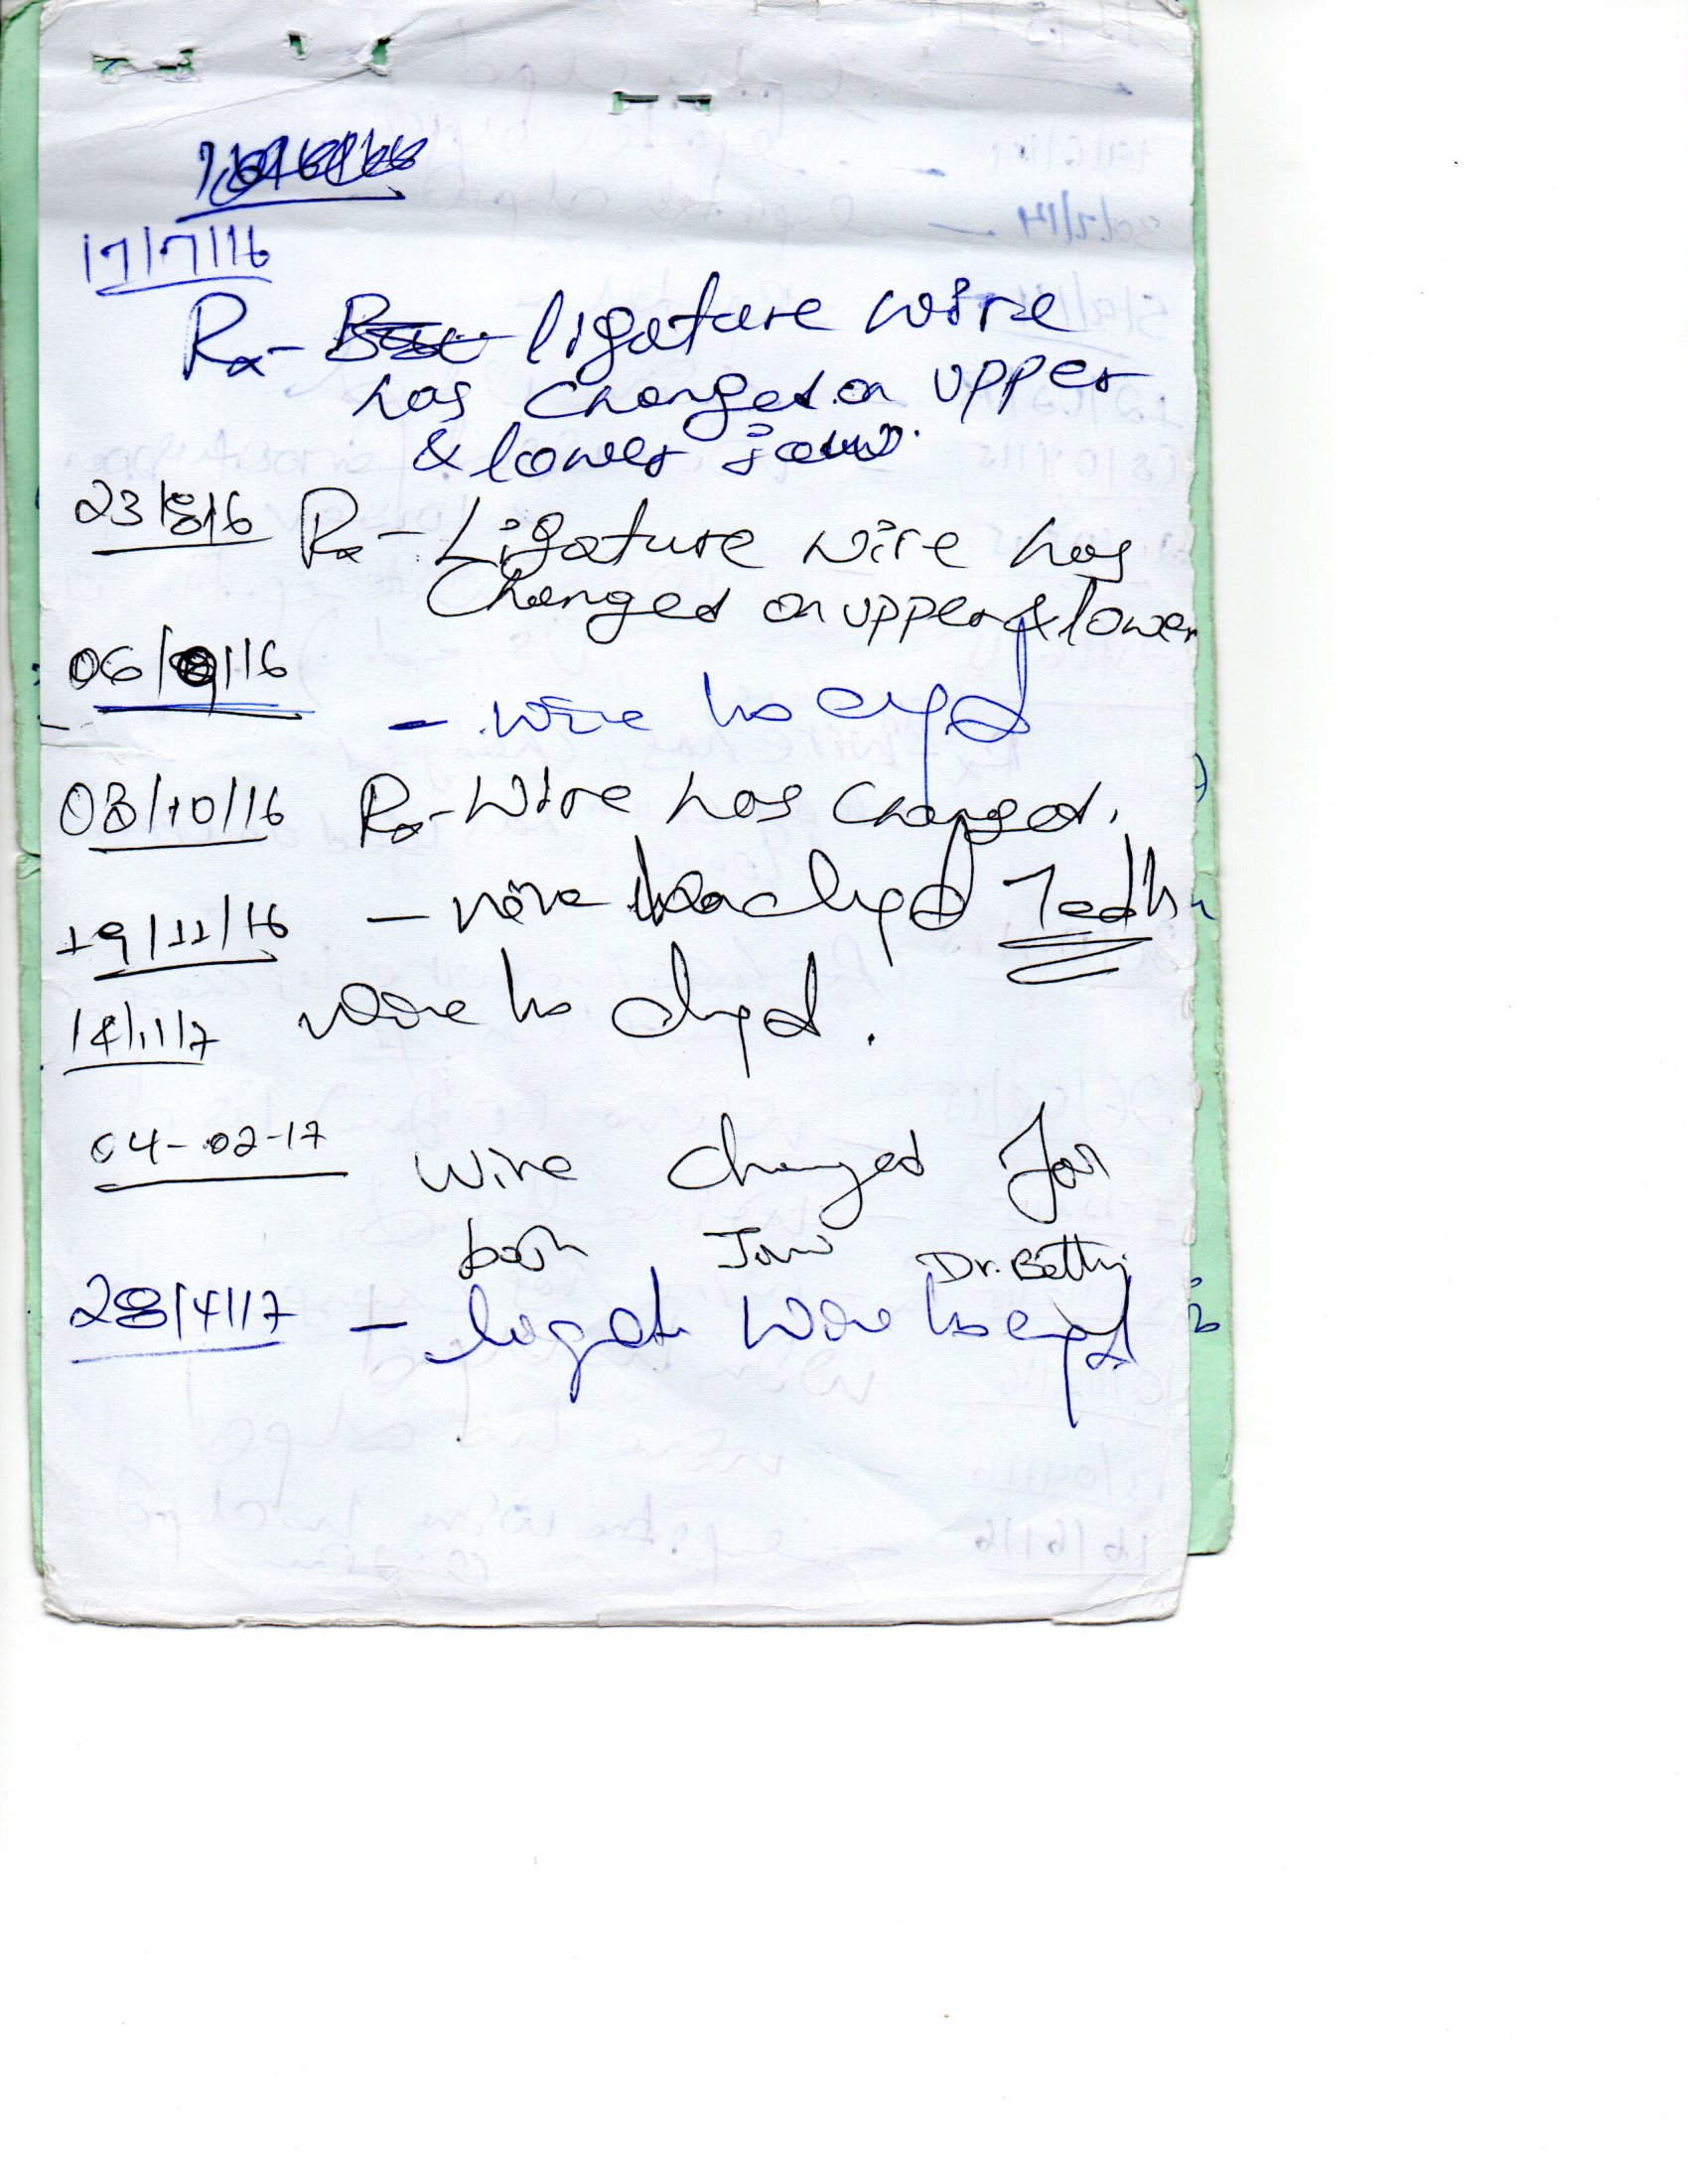 17/7/16
Rx- ligature wire
has changed on upper
& lower jaw.
23/8/16 Rx - Ligature wire has
Changed on upper & lower
06/9/16
- wire has
08/10/16 Rx- Wire has changed.
19/11/16 - wire
14/1/17 wire has
04-02-17 Wire changed for
both Jaw Dr. Betty
28/4/17 - wire has